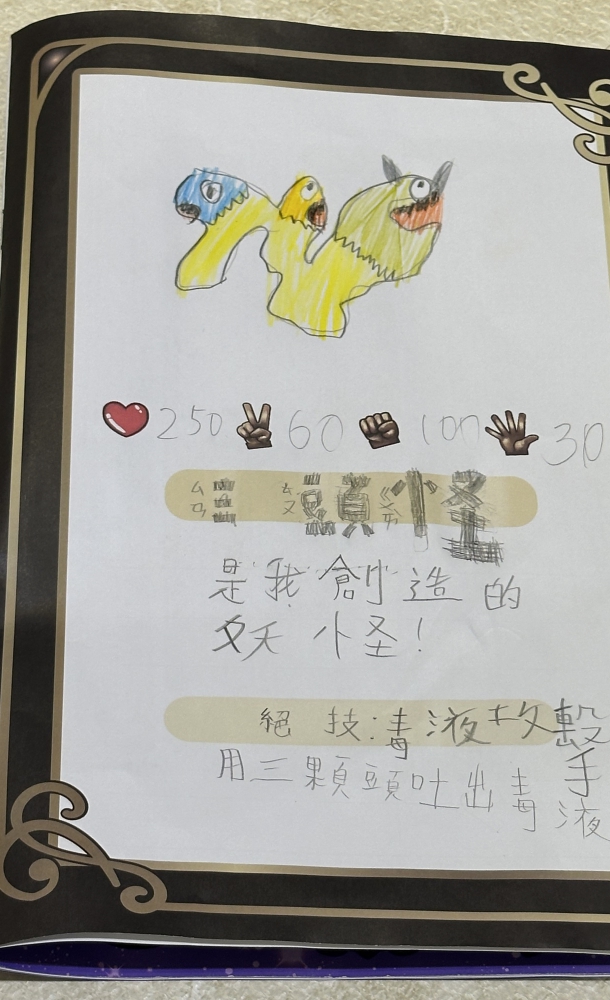 250 60 100 30
頭小怪
是我創造的
妖小怪！
絕技:毒液攻擊手
用三顆頭吐出毒液